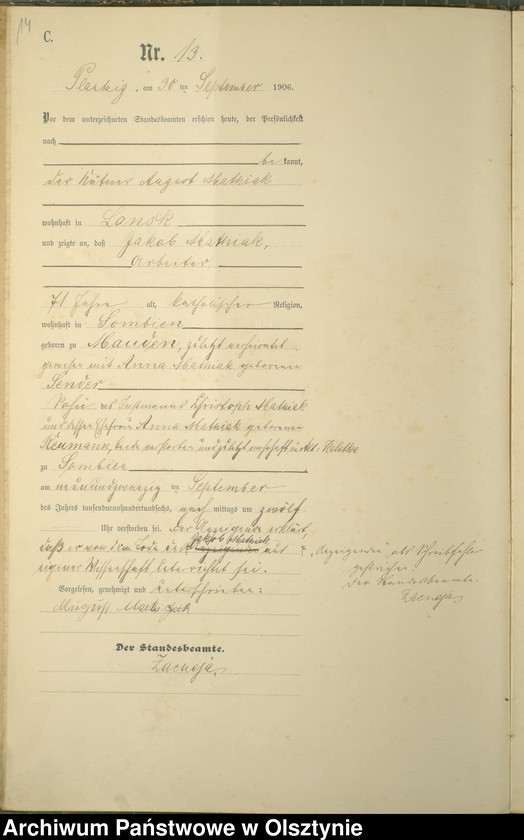 14
C.
Nr. 13.
am 30 ten September 1906.
Vor dem unterzeichneten Standesbeamten erschien heute, der Persönlichkeit
nach
be kannt,
der August Mathiak
wohnhaft in Lansk
und zeigte an, daß Jakob Mathiak,
Arbeiter
71 Jahre alt, katholischer Religion,
wohnhaft in Dombien
geboren zu Mauden, zuletzt verheiratet
gewesen mit Anna Mathiak geborene
Sender
Sohn des Christoph Mathiak
und dessen Ehefrau Anna Mathiak geborene
Neumann, beide verstorben und zuletzt wohnhaft in Alt
zu Dombien
am neunundzwanzig ten September
des Jahres tausendneunhundertsechs, nach mittags um zwölf
Uhr verstorben sei. Der Anzeigende erklärt,
Jakob Mathiak
daß er von dem Tode des Anzeigenden aus "Anzeigenden" als Schreibfehler
eigener Wissenschaft unterrichtet sei. gestrichen
Der Standesbeamte.
Vorgelesen, genehmigt und unterschrieben:
Zacheja
August
Der Standesbeamte.
Zacheja
Archiwum Państwowe w Olsztynie